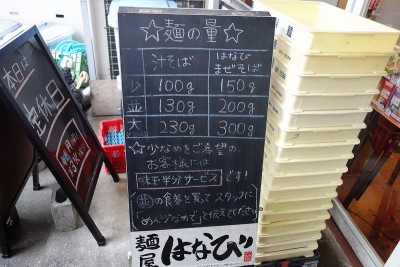 ☆麺の量☆
汁そば はなび まぜそば
少 100g 150g
並 130g 200g
大 230g 300g
☆少なめをご希望の
お客様には
味玉半分サービスです!
並の食券を買ってスタッフに
「めん少なめで」と伝えてください
麺屋 はなび
本日は
定休日